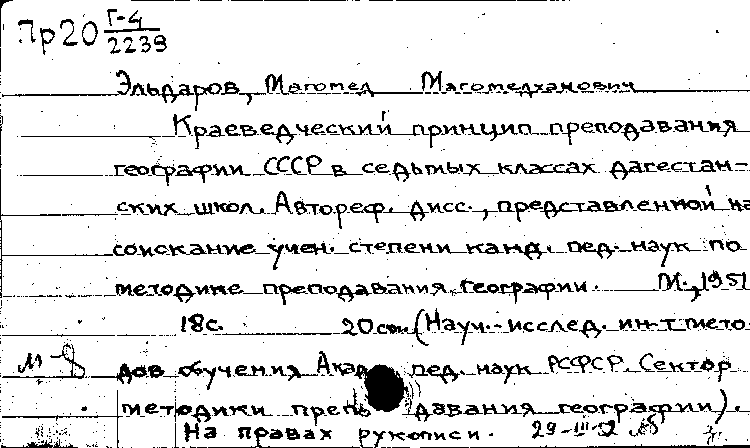 Пр20 Г-4/2239
Эльдаров, Магомед Магомедханович
Краеведческий принцип преподавания
географии СССР в седьмых классах дагестан-
ских школ. Автореф. дисс., представленной на
соискание учен. степени канд. пед. наук по
методике преподавания географии. М., 1951
18с. 20см. (Науч.-исслед. ин-т мето-
дов обучения Акад. пед. наук РСФСР. Сектор
методики препо давания географии).
На правах рукописи. 29-III-52